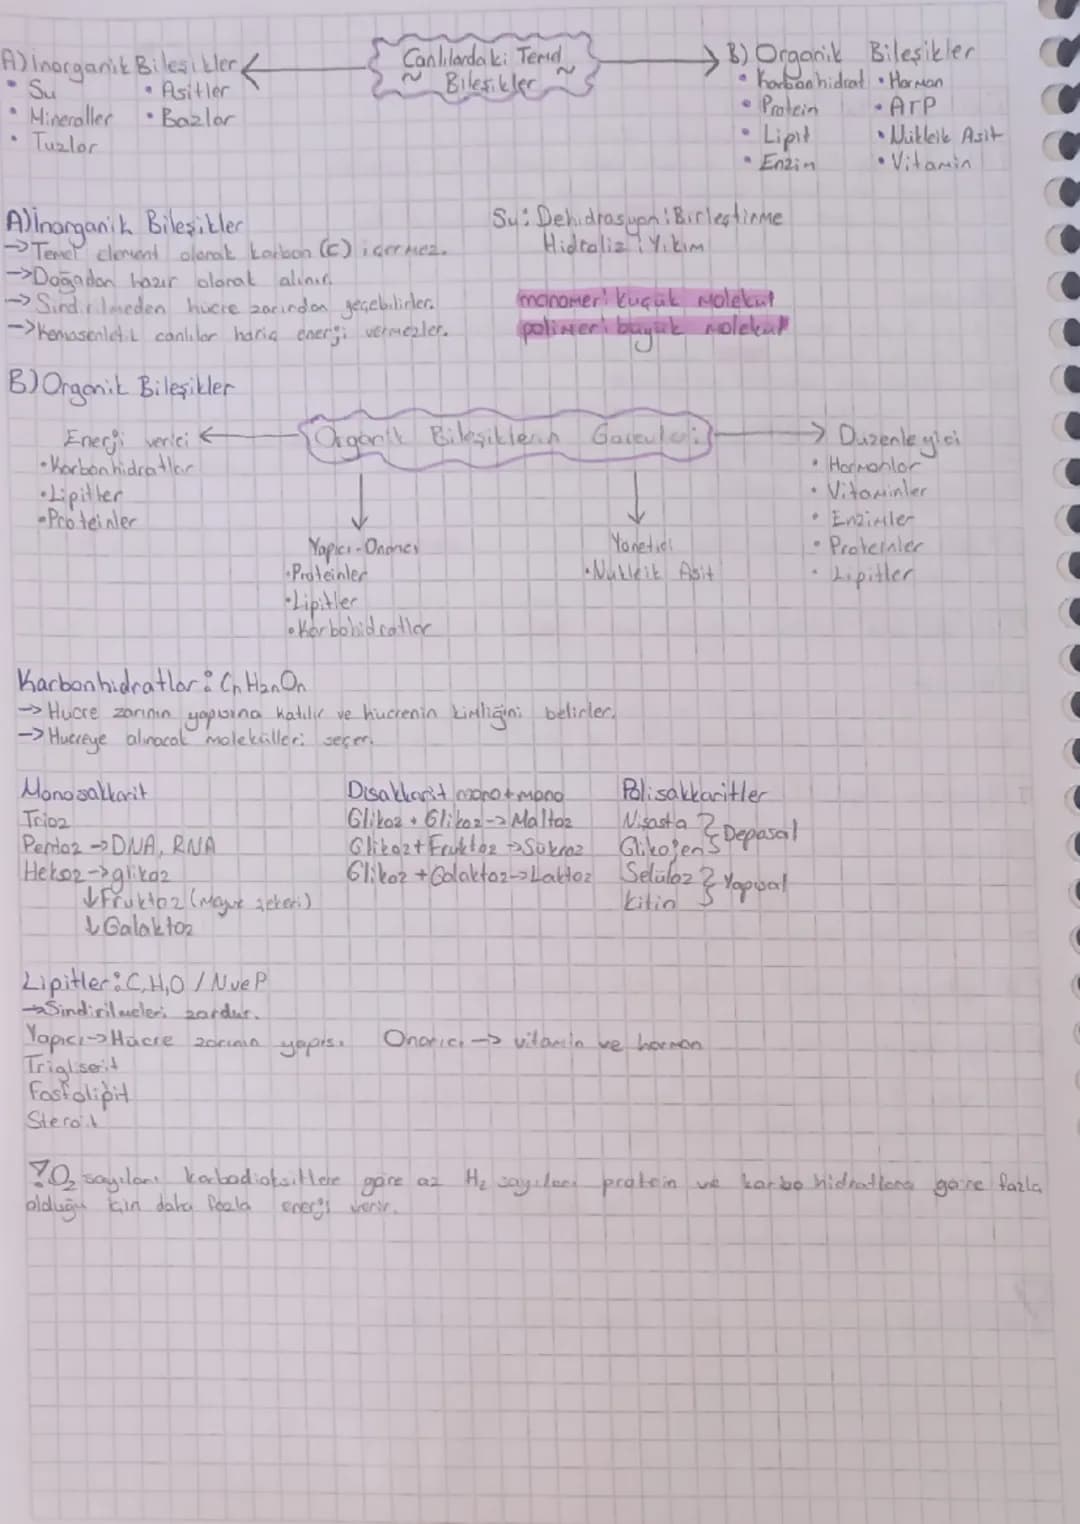 Canlılardaki Temel
~ Bileşikler ~
A) İnorganik Bileşikler
• Su
• Mineraller
• Tuzlar
• Asitler
• Bazlar
B) Organik Bileşikler
• Karbonhidrat
• Protein
• Lipit
• Enzim
• Hormon
• ATP
• Nükleik Asit
• Vitamin
A) İnorganik Bileşikler
→ Temel element olarak karbon (C) içermez.
→ Doğadan hazır olarak alınır.
→ Sindirilmeden hücre zarından geçebilirler.
→ Kemosentetik canlılar hariç enerji vermezler.
Su: Dehidrasyon: Birleştirme
Hidroliz: Yıkım
monomer: küçük molekül
polimer: büyük molekül
B) Organik Bileşikler
Organik Bileşiklerin Görevleri
Enerji verici
• Karbonhidratlar
• Lipitler
• Proteinler
Yapıcı-Onarıcı
• Proteinler
• Lipitler
• Karbohidratlar
Yönetici
• Nükleik Asit
Düzenleyici
• Hormonlar
• Vitaminler
• Enzimler
• Proteinler
• Lipitler
Karbonhidratlar: CnH2nOn
→ Hücre zarının yapısına katılır ve hücrenin kimliğini belirler.
→ Hücreye alınacak molekülleri seçer.
Monosakkarit
Trioz
Pentoz → DNA, RNA
Heksoz → glikoz
↓ Fruktoz (Meyve şekeri)
↓ Galaktoz
Disakkarit mono+mono
Glikoz + Glikoz → Maltoz
Glikoz + Fruktoz → Sükroz
Glikoz + Galaktoz → Laktoz
Polisakkaritler
Nişasta
Glikojen } Depasal
Selüloz
kitin } Yapısal
Lipitler: C,H,O / N ve P
→ Sindirilmeleri zordur.
Yapıcı → Hücre zarının yapısı Onarıcı → vitamin ve hormon
Trigliserit
Fosfolipit
Steroit
? O2 sayıları karbodioksitlere göre az H2 sayıları protein ve karbohidratlara göre fazla
olduğu için daha fazla enerji verir.